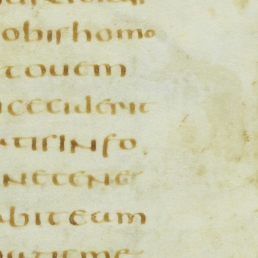 obishomo
touem
ceciderit
tisinfo
netene
abiteam